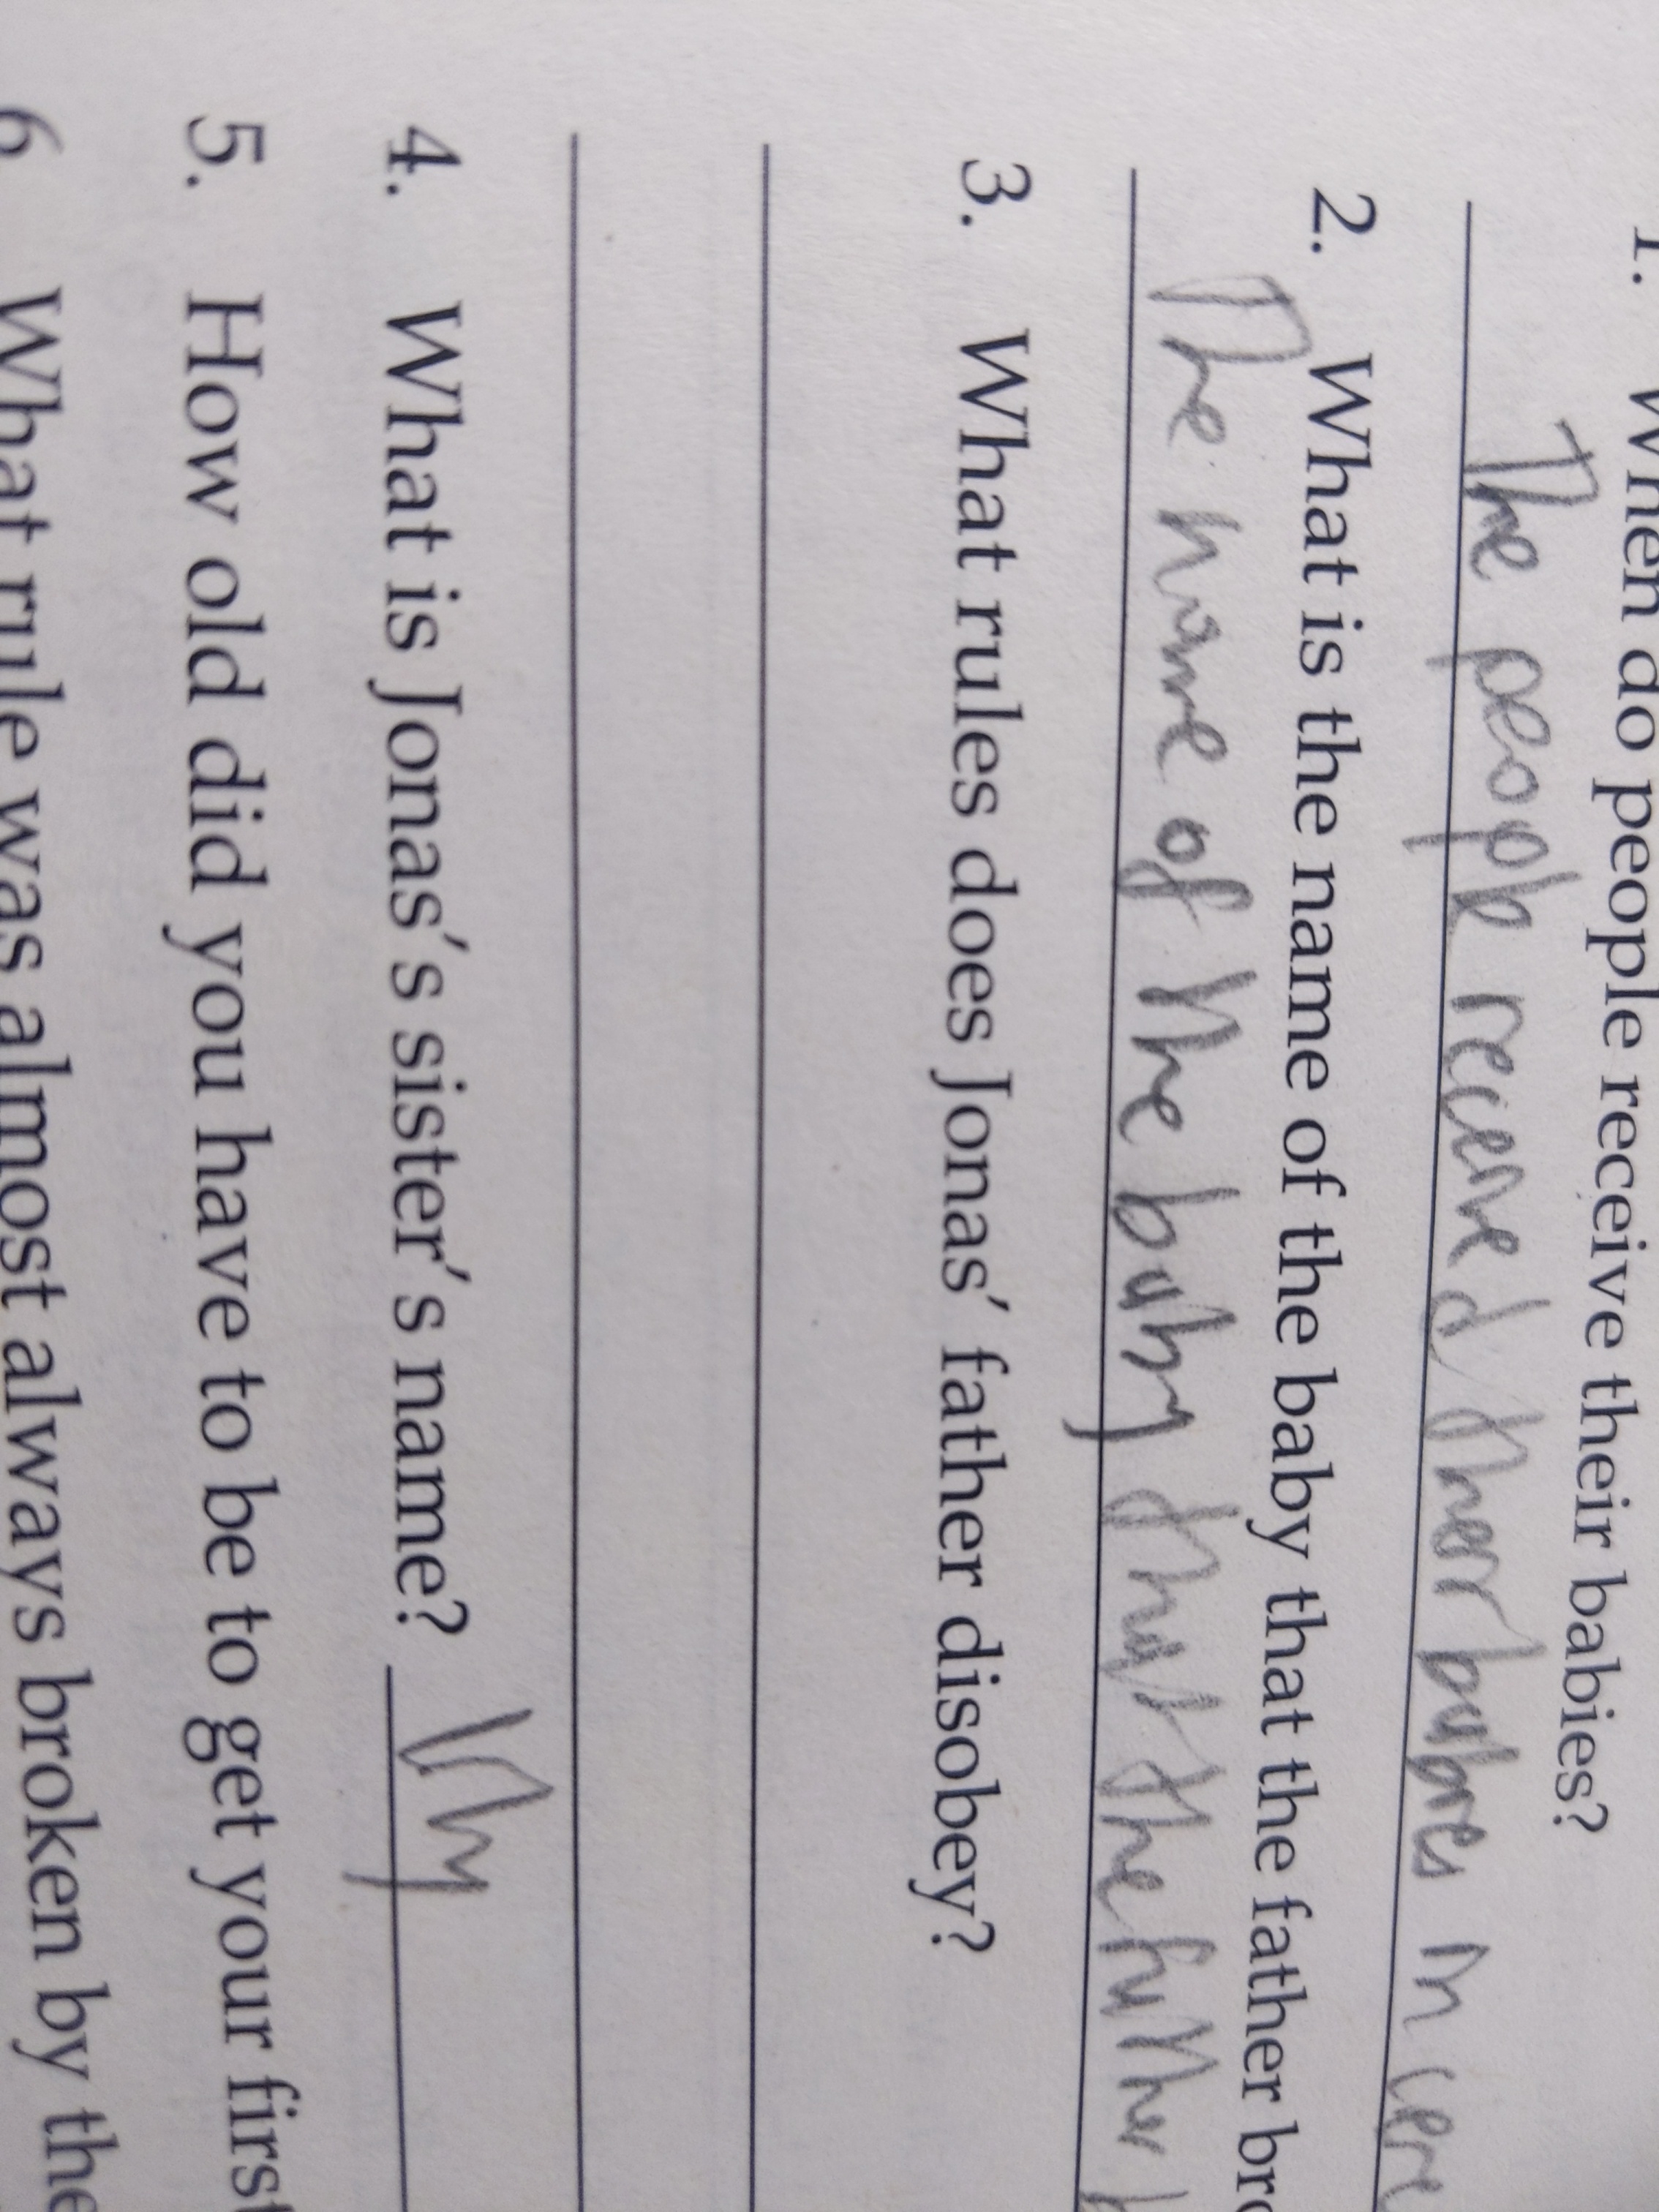 1. When do people receive their babies?
The people recieved their babies in cere
2. What is the name of the baby that the father bro
The name of the baby that the father b
3. What rules does Jonas' father disobey?
4. What is Jonas's sister's name? Lily
5. How old did you have to be to get your first
6 What rule was almost always broken by the